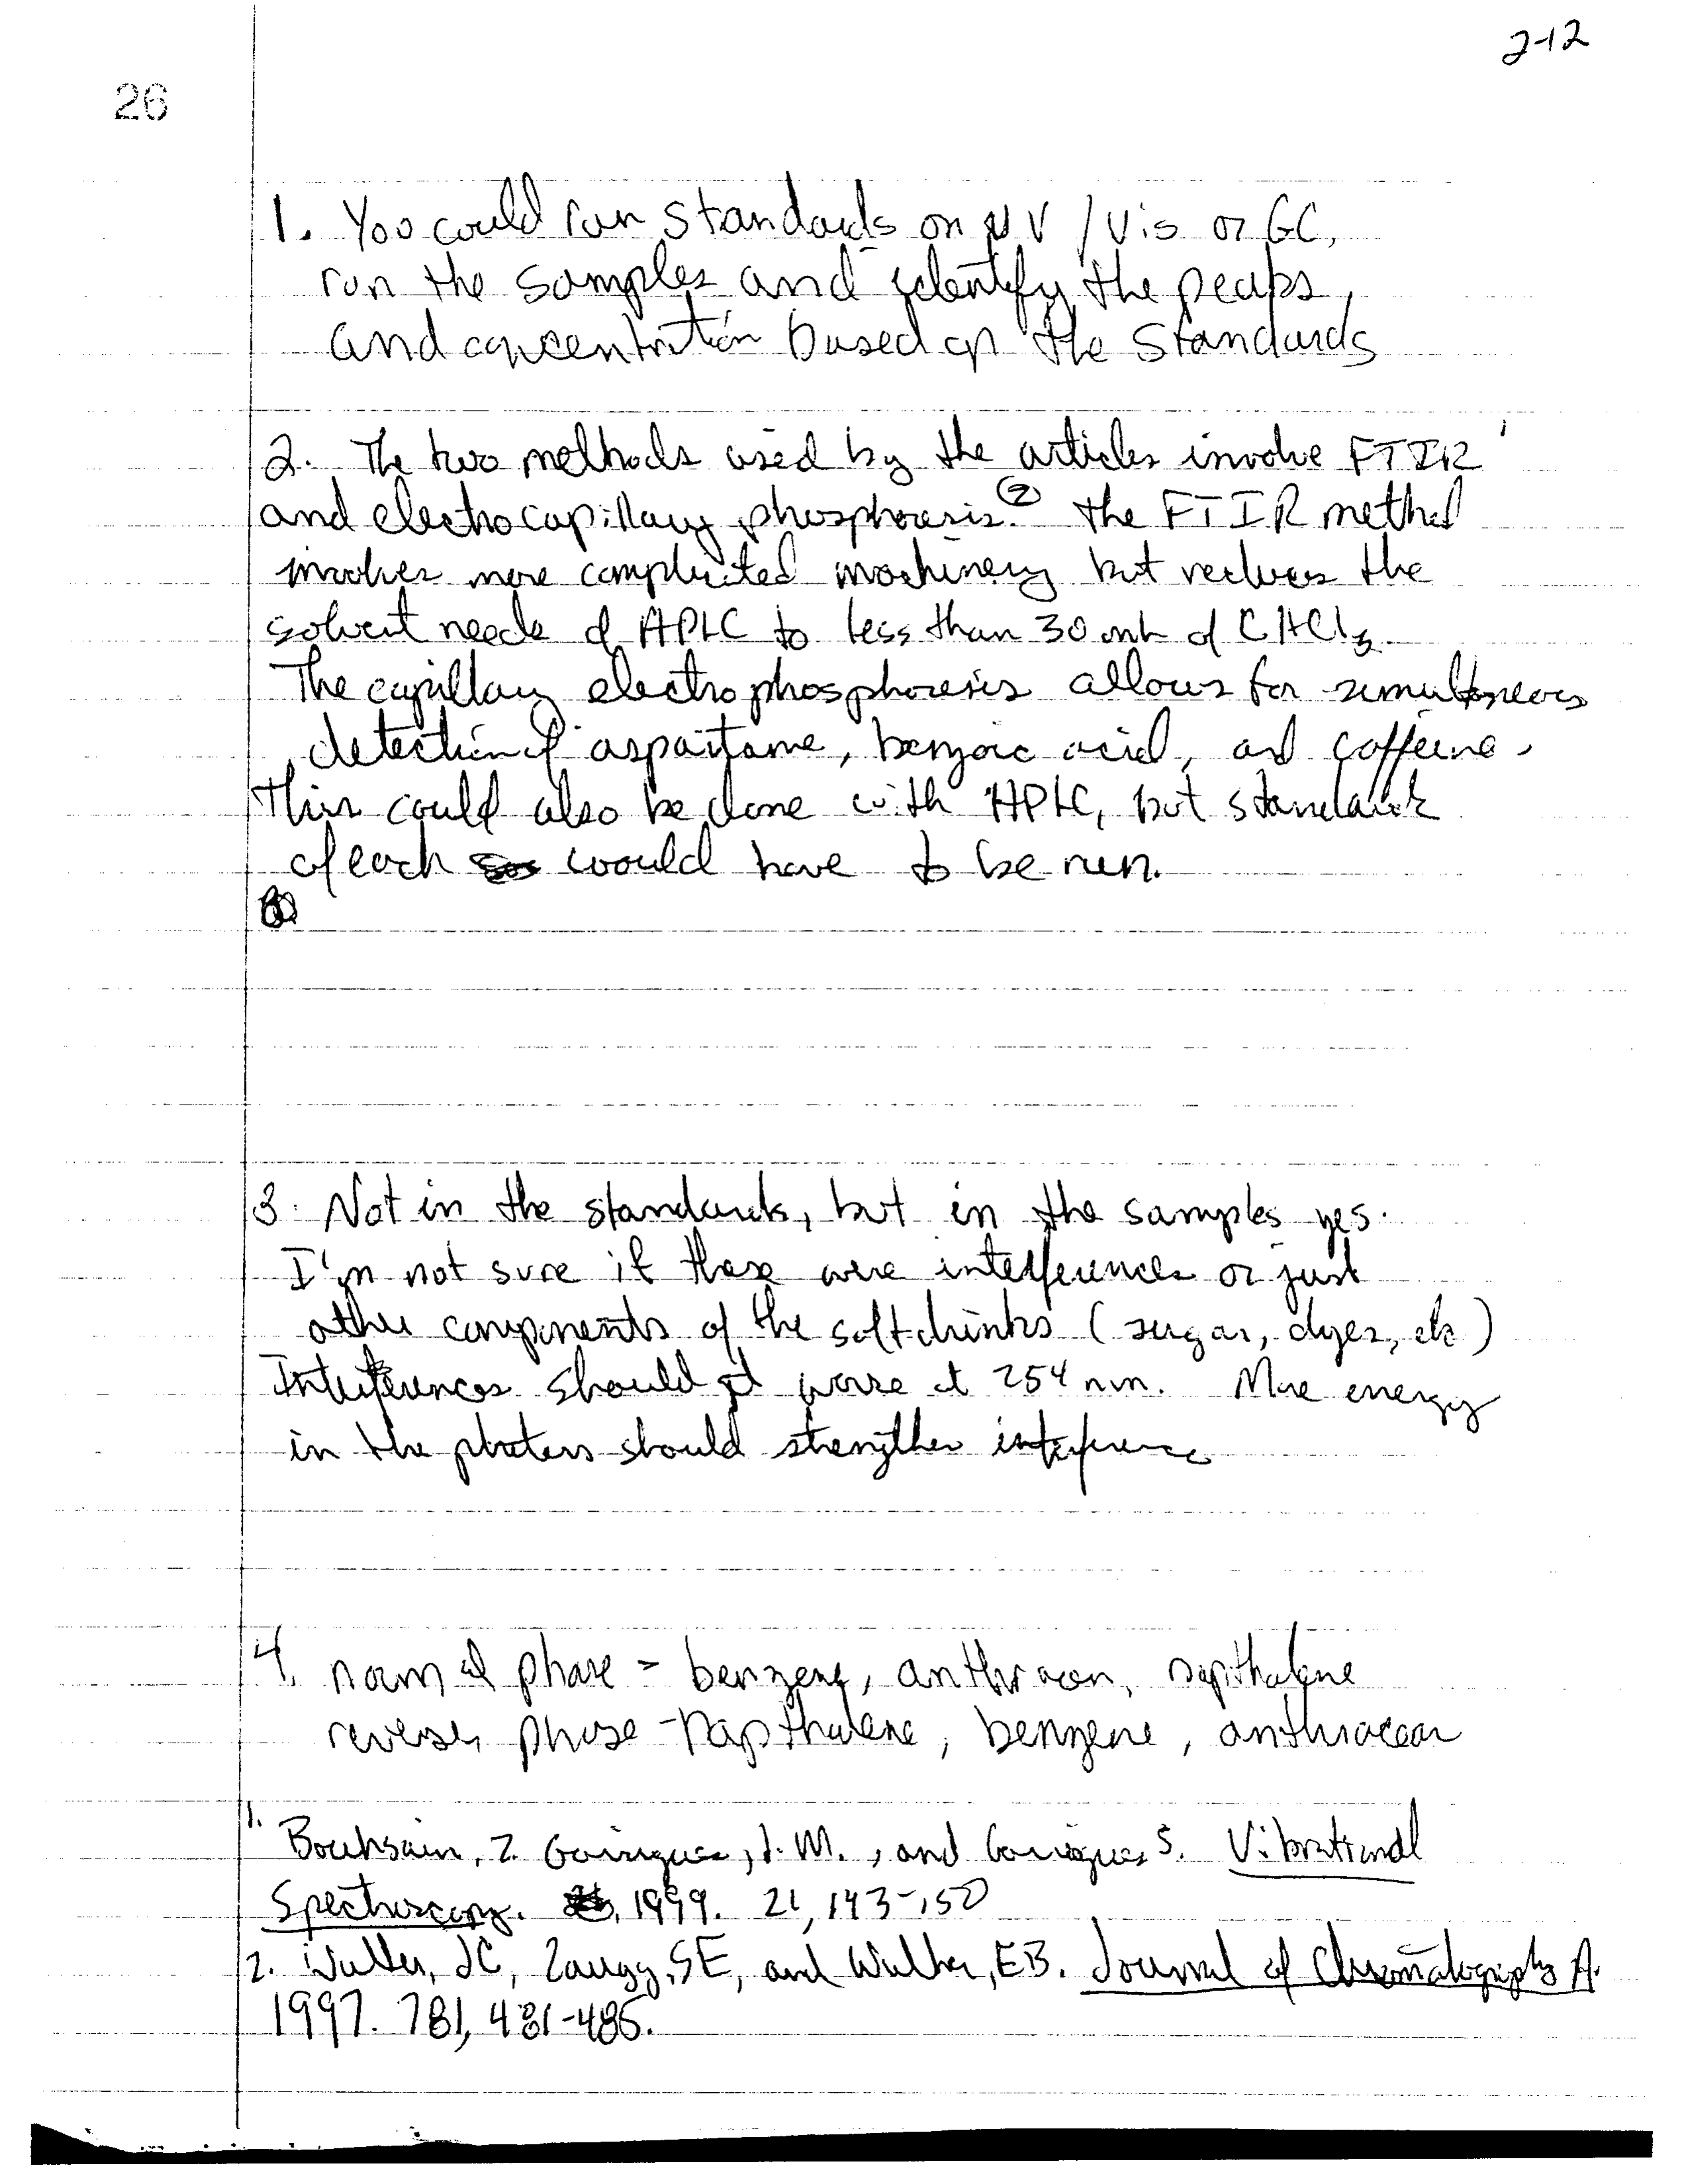 2-12
26
1. You could run standards on UV/Vis or GC,
run the samples and identify the peaks,
and concentration based on the standards
2. The two methods used by the articles involve FTIR 1
and electrocapillary phosphoresis. 2 The FTIR method
involves more complicated machinery but reduces the
solvent needs of HPLC to less than 30 mL of CHCl3.
The capillary electrophosphoresis allows for simultaneous
detection of aspartame, benzoic acid, and caffeine.
This could also be done with HPLC, but standards
of each would have to be run.
3. Not in the standards, but in the samples yes.
I'm not sure if these were interferences or just
other components of the soft drinks (sugar, dyes, etc)
Interferences should get worse at 254 nm. More energy
in the photons should strengthen interference
4. normal phase - benzene, anthracen, napthalene
reverse phase - napthalene, benzene, anthracean
1. Bouhsain, Z. Garrigues, J.M., and Garrigues S. Vibrational
Spectroscopy. 1999. 21, 143-150
2. Walker, JC, Zaugg, SE, and Walker, EB. Journal of Chromatography A.
1997. 781, 481-485.